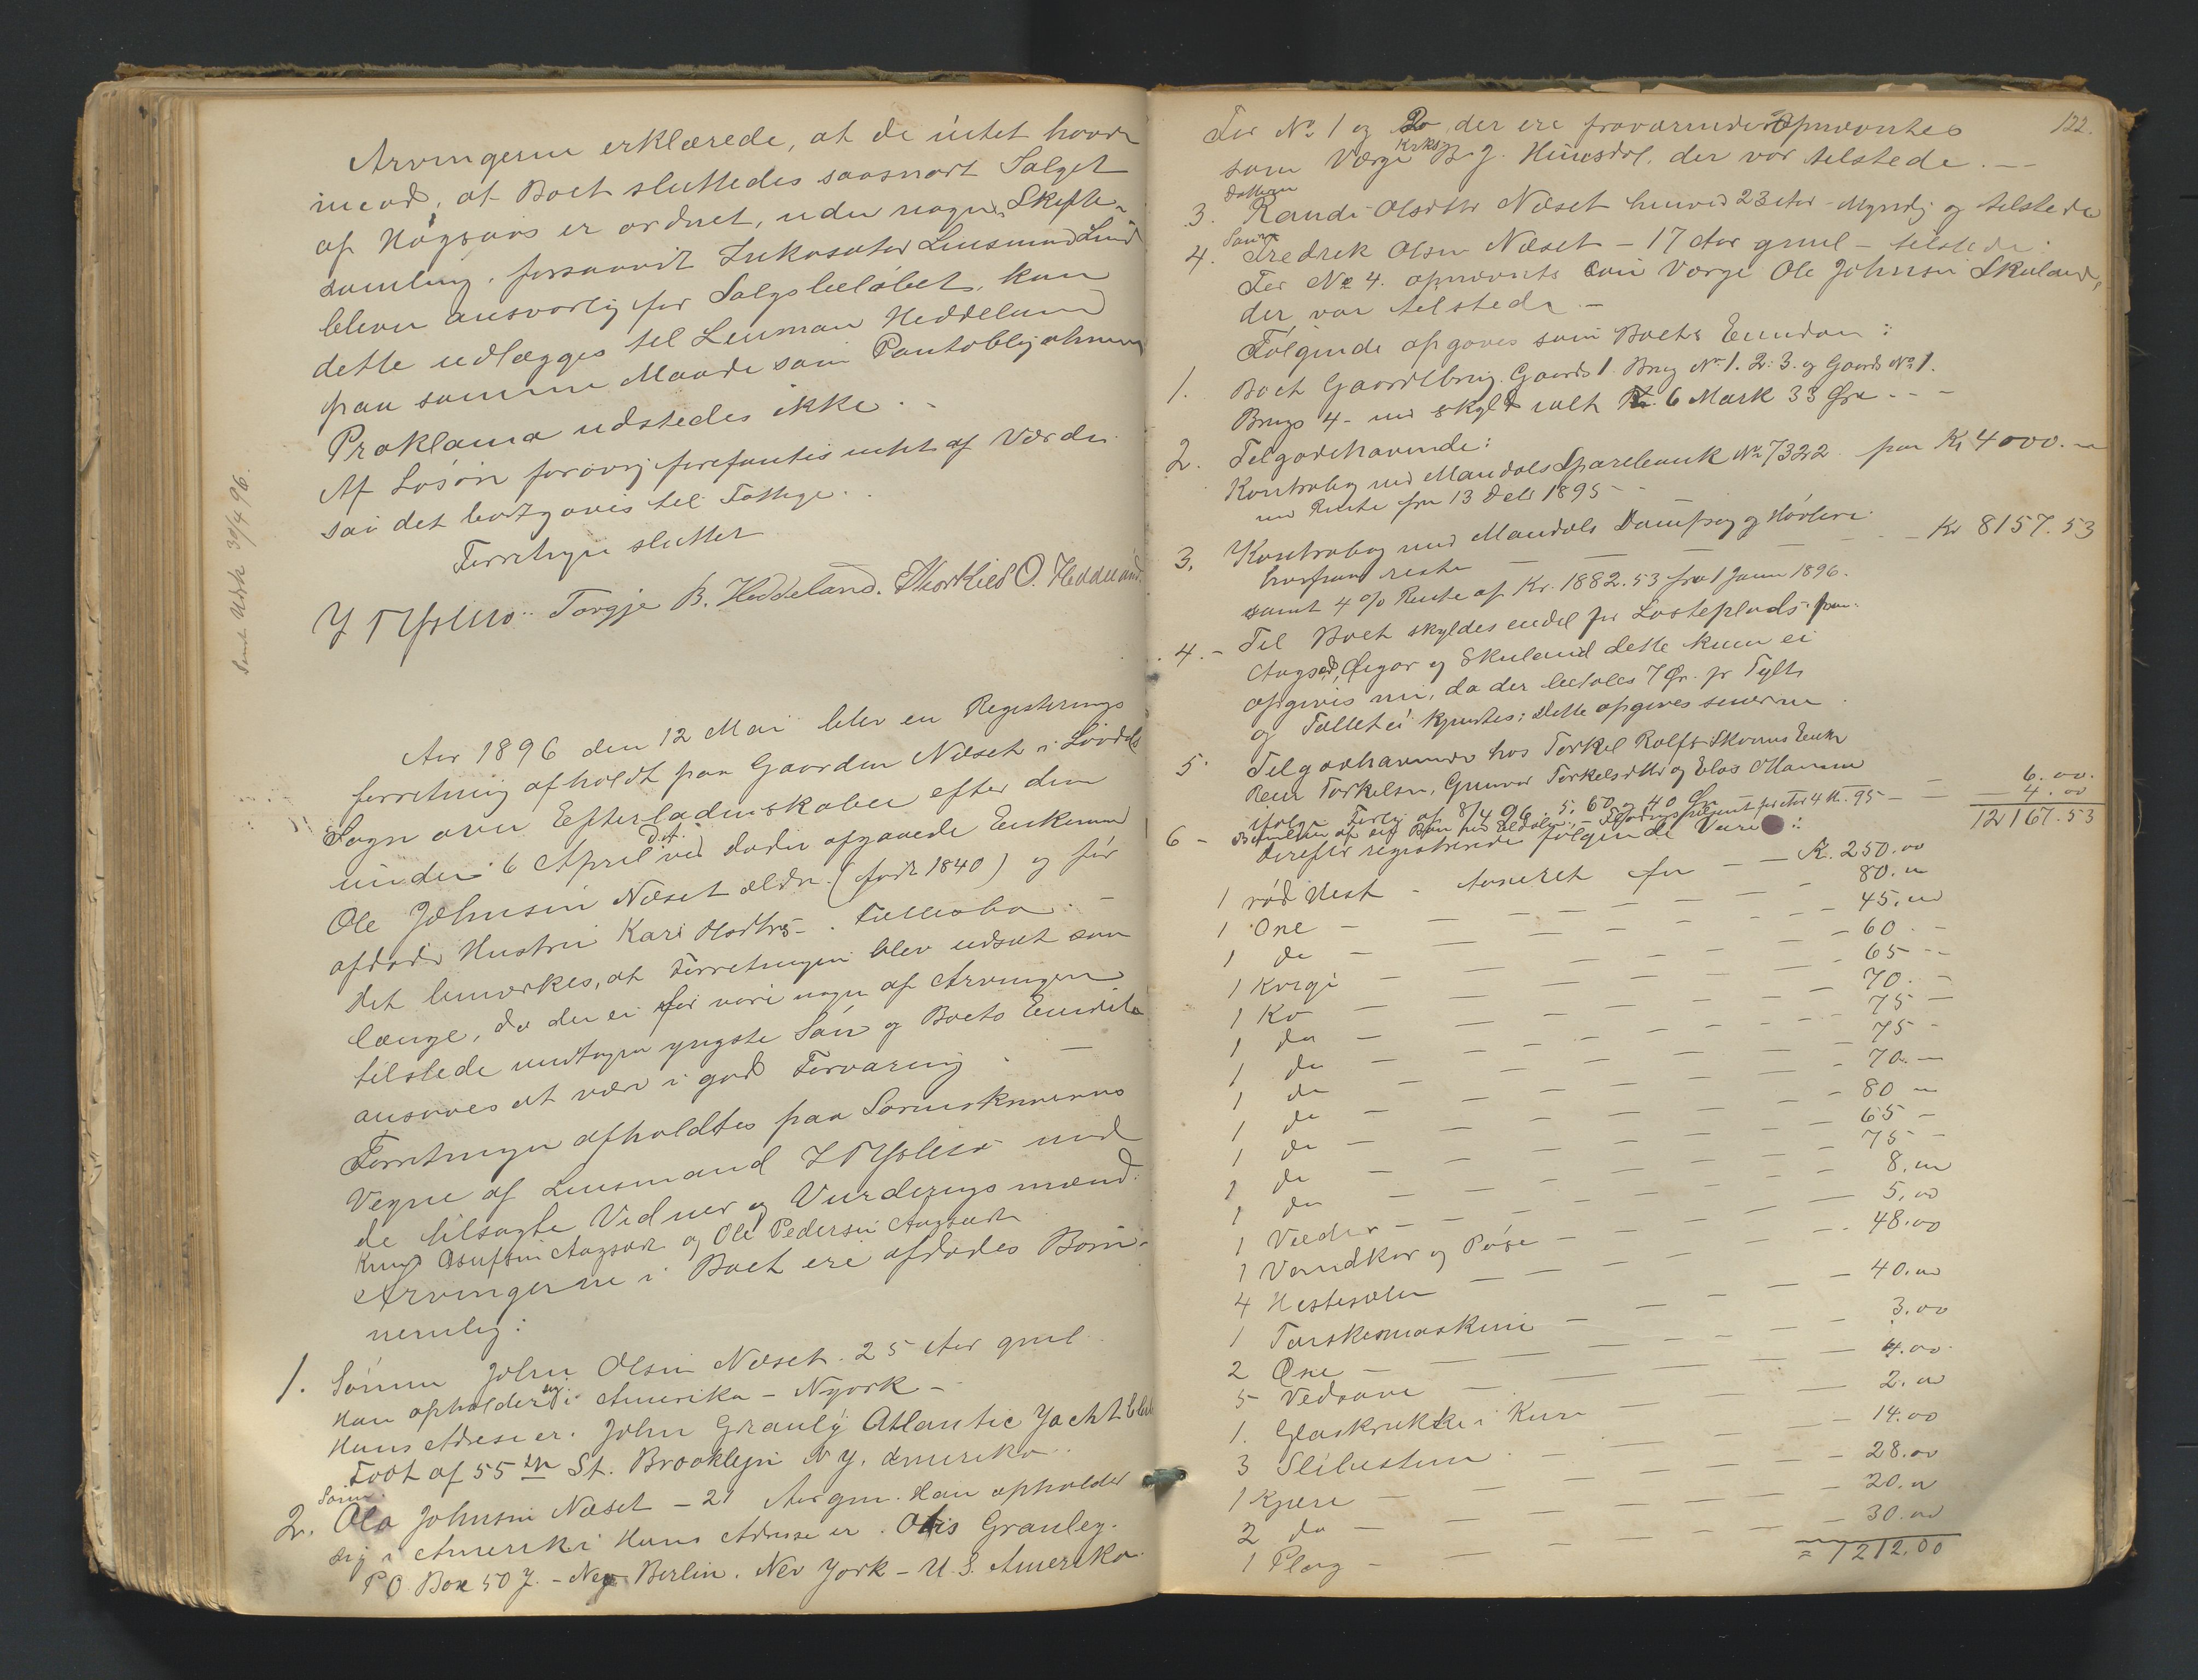 Arvingerne erklærede, at de intet havde
imod, at Boet sluttedes saasnart Salget
af Høgsaas er ordnet, uden nogen Skifte-
samling, forsaavidt Inkasator Lensmand Lund
bliver ansvarlig for Salgsbeløbet, kan
dette udlægges til Lensman Heddeland
paa samme Maade som Pantobligationen
Proklama udstedes ikke. -
Af Løsøre forøvrig forefantes intet af Værdi
saa det bortgaves til Fattige.
Forretnn sluttet
Torgje B. Heddeland. Thorkild O. Heddeland.
Sendt Udsk 30/4 96.
Aar 1896 den 12 Mai blev en Registrerings
forretning afholdt paa Gaarden Næset i Løvdals
Sogn over Efterladenskaber efter den
under 6 April d.A. ved Døden afgaaede Enkemand
Ole Johnsen Næset ældre (født 1840) og før
afdøde Hustru Kari Olsdtr - Fællesbo. -
Det bemærkes, at Forretningen blev udsat saa
længe, da der ei før vare nogen af Arvingerne
tilstede undtagen yngste Søn og Boets Eiendele
ansaaes at være i god Forvaring. -
Forretningen afholdtes paa Sorenskriverens
Vegne af Lensmand med
de tilsagte Vidner og Vurderingsmænd:
Knud Asulfsen Aagsæd og Ole Pedersen Aagsæd
Arvingerne i Boet ere afdødes Børn -
nemlig:
1. Sønnen John Olsen Næset. 25 Aar gml
Han opholder sig i Amerika - Nyork -
Hans Adresse er. John Grauly Atlantic Yacht Club
Foot of 55 th St. Brooklyn N Y. Amerika.
Sønn
2. Ola Johnsen Næset - 21 Aar gm. Han opholder
sig i Amerika Hans Adresse er. Otis Granley.
P O. Box 507. - New Berlin. New York - U. S. Amerika
122.
For No 1 og 2, der ere fraværende Opnævntes
som Værge Krks. B. J. Hinesdal, der var tilstede. -
Datteren
3. Randi Olsdtr Næset henved 23 Aar - Myndig og tilstede
Sønn
4. Fredrek Olsen Næset - 17 Aar gml - tilstede.
For No 4. opnævntes som Værge Ole Johnsen Skuland,
der var tilstede. -
Følgende opgaves som Boets Eiendom:
1. Boets Gaardbrug. Gaards 1. Brug No 1. 2. 3. og Gaards No 1.
Brugs 4 - med Skyld ialt 6 Mark 33 Øre - -
2. Tilgodehavende:
Kontrabog med Mandals Sparebank No 7322 paa Kr 4000. -
med Rente fra 13 Debr 1895 -
3. Kontrabog med Mandals Dampsag og Høvleri
hvorpaa reste - - - - Kr 8157.53
samt 4 % Rente af Kr. 1882.53 fra 1 Januar 1896.
4. - Til Boet skyldes endel for Lasteplads paa
Aagsæd, Øigar og Skuland dette kunn ei
opgives nu, da der betales 7 Ør. pr Tylft
og Tallet ei kjendtes; Dette opgives senere
5. Tilgodehavende hos Torkel Rolfs Skovens Enke
Reier Torkelsen, Gunvor Torkelsdtr og Elas OHammen
ifølge Forlig af 8/4 96. 5.60 og 40 Øre - 6.00.
6 - - 4.00
12167.53
Derefter registreredes følgende Varer:
1 rød Hest - taxeret for - - Kr. 250.00
1 Oxe - 80. -
1 do - 45. -
1 Kvige - 60. -
1 Ko - 65 -
1 do - 70. -
1 do - 75 -
1 do - 75 -
1 do - 70. -
1 do - 80 -
1 do - 65 -
1 do - 75 -
1 Væder - 8. -
1 Vandkar og Pøse - 5.00
4 Hestesæler - 48.00
1 Tærskemaskine - 40. -
2 Øxe - 3.00
5 Vedsave - 4.00
1. Glaskrukke i Kurv - 2. -
3 Slibesten - 14.00
1 Kjærre - 28.00
2 do - 20. -
1 Plog - 30.00
= 1212.00